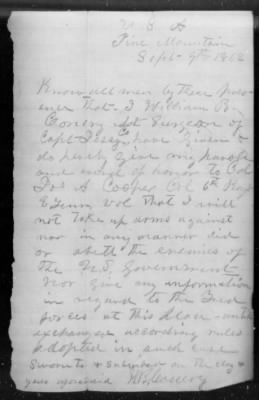 U. S. A
Pine Mountain
Sept. 9th 1862
Know all men by these pres-
that I William B.
Conery Ast Surgeon of
Capt have given &
do hereby give my parole
and word of honor to Col
Jos A Cooper Col 6th Regt
E Tenn Vol that I will
not take up arms against
nor in any manner aid
or abett the enemies of
the U.S. Government
Nor give any information
in regard to the Fed
forces at this place until
exchange according rules
adopted in such case
Sworn to & Subscribed on the day &
year aforesaid